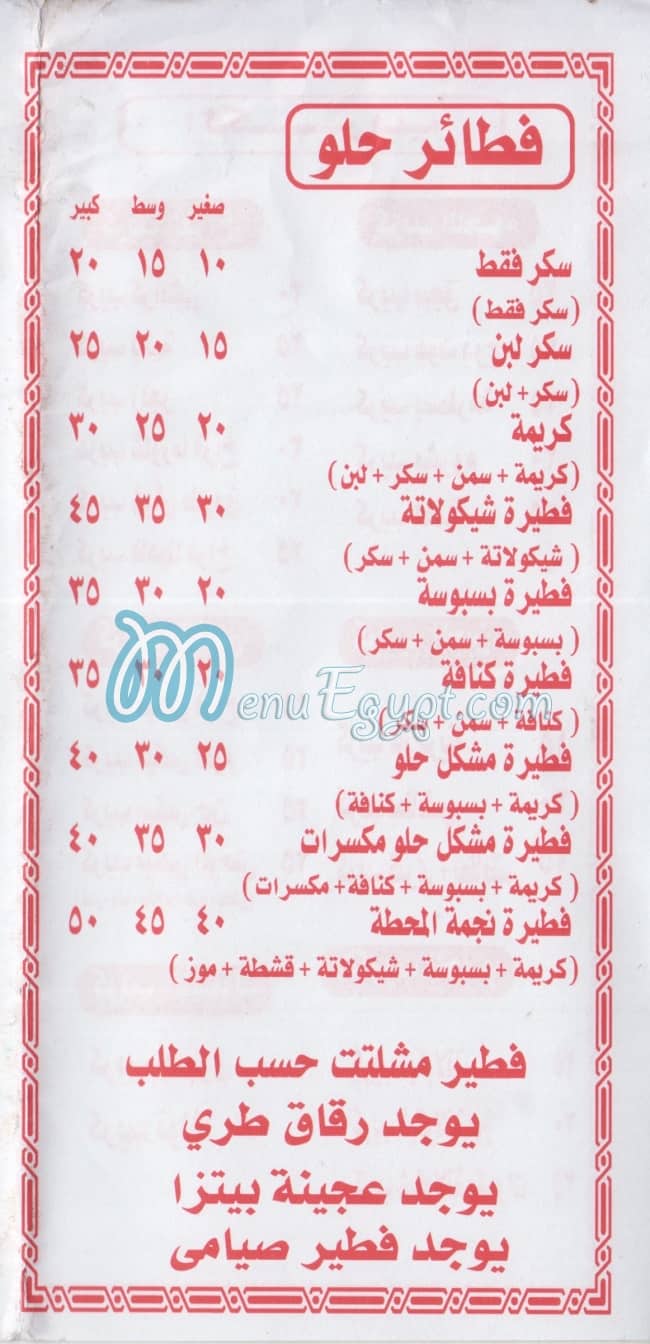 فطائر حلو
صغير وسط كبير
سكر فقط ١٠ ١٥ ٢٠
(سكر فقط)
سكر لبن ١٥ ٢٠ ٢٥
(سكر+ لبن)
كريمة ٢٠ ٢٥ ٣٠
(كريمة + سمن + سكر + لبن)
فطيرة شيكولاتة ٣٠ ٣٥ ٤٥
(شيكولاتة + سمن + سكر)
فطيرة بسبوسة ٢٠ ٣٠ ٣٥
(بسبوسة + سمن + سكر)
فطيرة كنافة ٢٠ ٣٠ ٣٥
(كنافة + سمن + سكر)
MenuEgypt.com
فطيرة مشكل حلو ٢٥ ٣٠ ٤٠
(كريمة + بسبوسة + كنافة)
فطيرة مشكل حلو مكسرات ٣٠ ٣٥ ٤٠
(كريمة + بسبوسة + كنافة+ مكسرات)
فطيرة نجمة المحطة ٤٠ ٤٥ ٥٠
(كريمة + بسبوسة + شيكولاتة + قشطة + موز)
فطير مشلتت حسب الطلب
يوجد رقاق طري
يوجد عجينة بيتزا
يوجد فطير صيامى